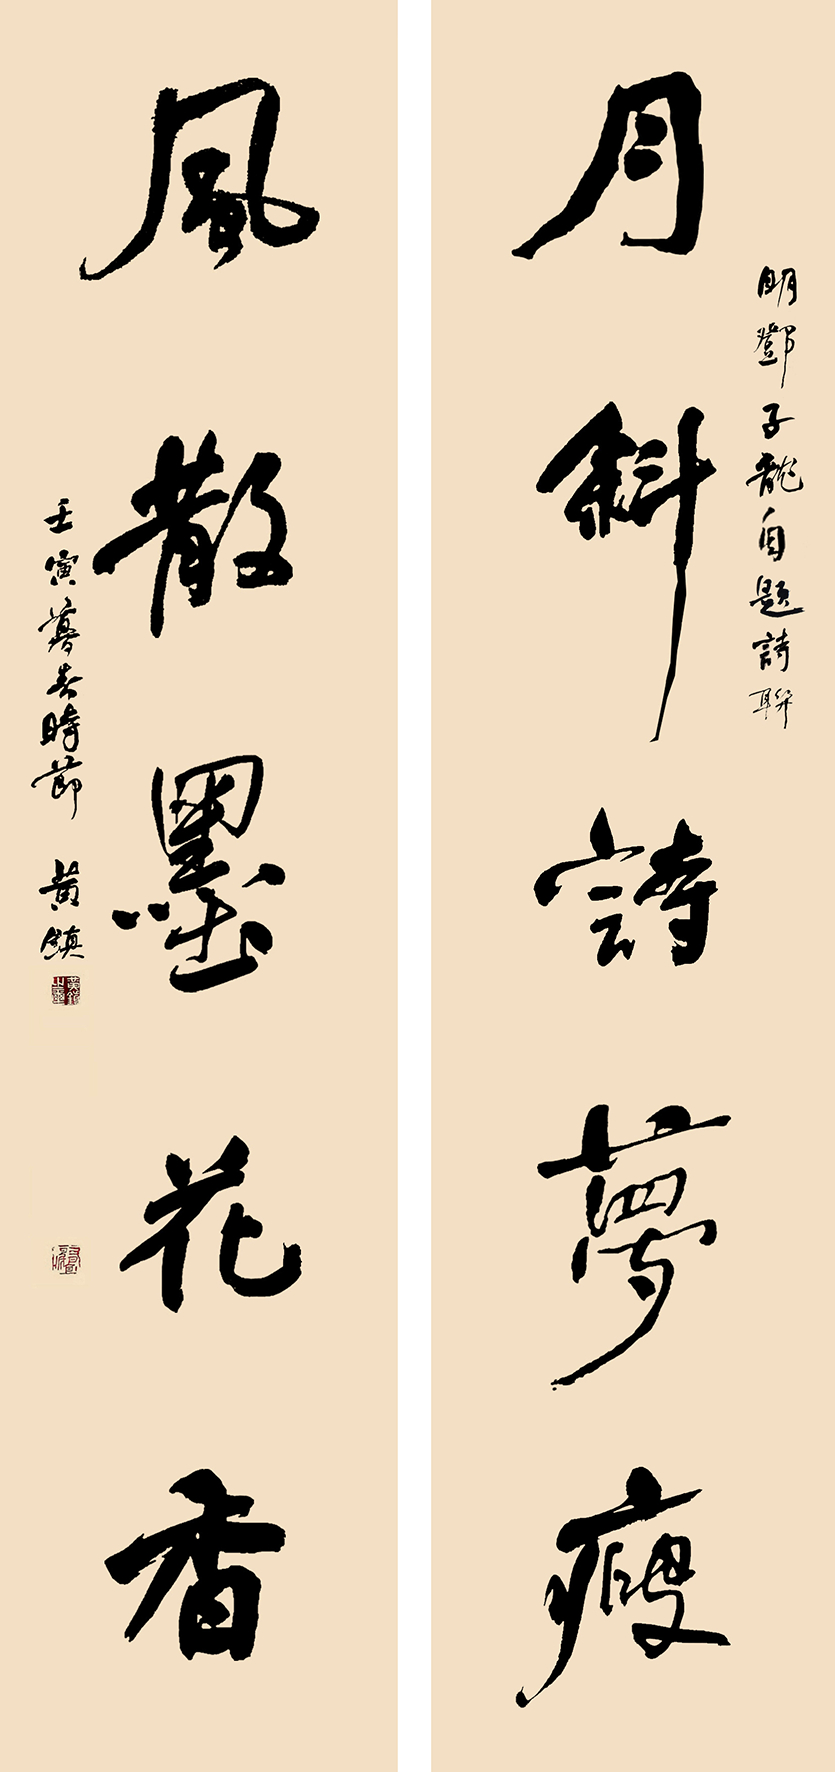 明鄧子龍自題詩聯
月斜詩夢瘦
風散墨花香
壬寅暮春時節 黃鎮